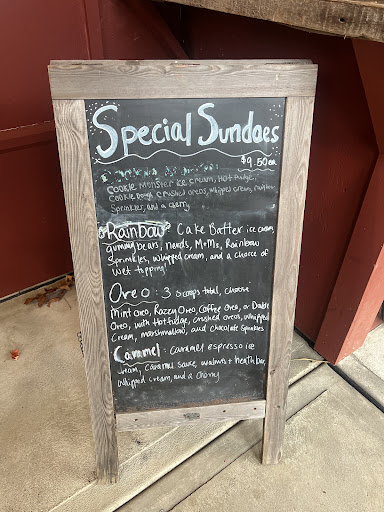 Special Sundaes
$9.50 ea.
Cookie Monster ice cream, Hot fudge,
Cookie Dough, crushed oreos, whipped cream,
Sprinkles, and a cherry
Rainbow: Cake Batter ice cream,
gummy bears, nerds, M&Ms, Rainbow
Sprinkles, whipped cream, and a choice of
wet topping!
Oreo: 3 scoops total, choose
Mint oreo, Razzy Oreo, Coffee Oreo, or Double
Oreo, with Hot fudge, crushed oreos, whipped
Cream, marshmallow, and chocolate Sprinkles
Caramel: Caramel espresso ice
cream, caramel sauce, walnuts + heath bar,
Whipped cream, and a cherry